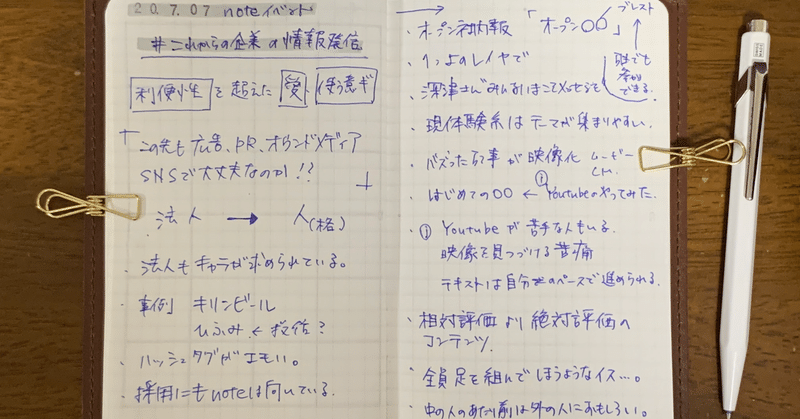 20.7.07 noteイベント
#これからの企業の情報発信
利便性を超えた愛、使う意ギ
「この先も広告、PR、オウンドメディア
SNSで大丈夫なのか!?」
法人 → 人(格)
・法人もキャラが求められている。
・事例 キリンビール
ひふみ ← 投信?
・ハッシュタグがエモい。
・採用にもnoteは向いている。
→ ブレスト
・オープン社内報 「オープン〇〇」
誰でも
参加
できる。
・1つ上のレイヤで
・深津さん
・現体験系はテーマが集まりやすい。
・バズったら記事が映像化 ムービー
CM
・はじめての〇〇 ← YouTubeのやってみた。
① YouTubeが苦手な人もいる。
映像を見つづける苦痛
テキストは自分のペースで進められる。
・相対評価より絶対評価の
コンテンツ.
・全員足を組んでしまうようなイス…。
・中の人のあたり前は外の人におもしろい。